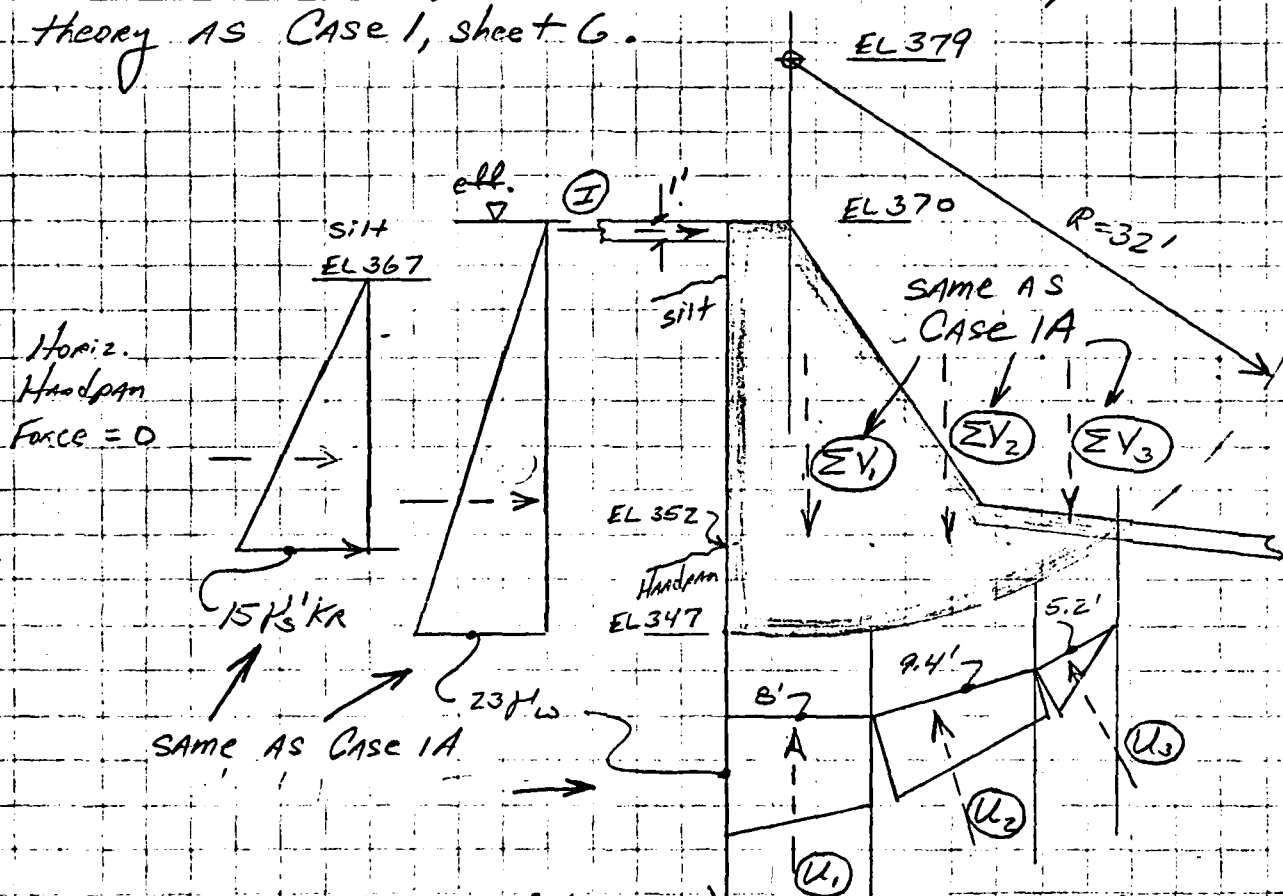 theory AS CASE 1, sheet 6.
EL 379
eff.
I
1'
EL 370
R=32'
silt
EL 367
silt
SAME AS
CASE 1A
Horiz.
Hardpan
Force = 0
ΣV₁
ΣV₂
ΣV₃
EL 352
Hardpan
EL 347
5.2'
15 γs' KR
9.4'
8'
23 γw
SAME AS CASE 1A
U₃
U₂
U₁